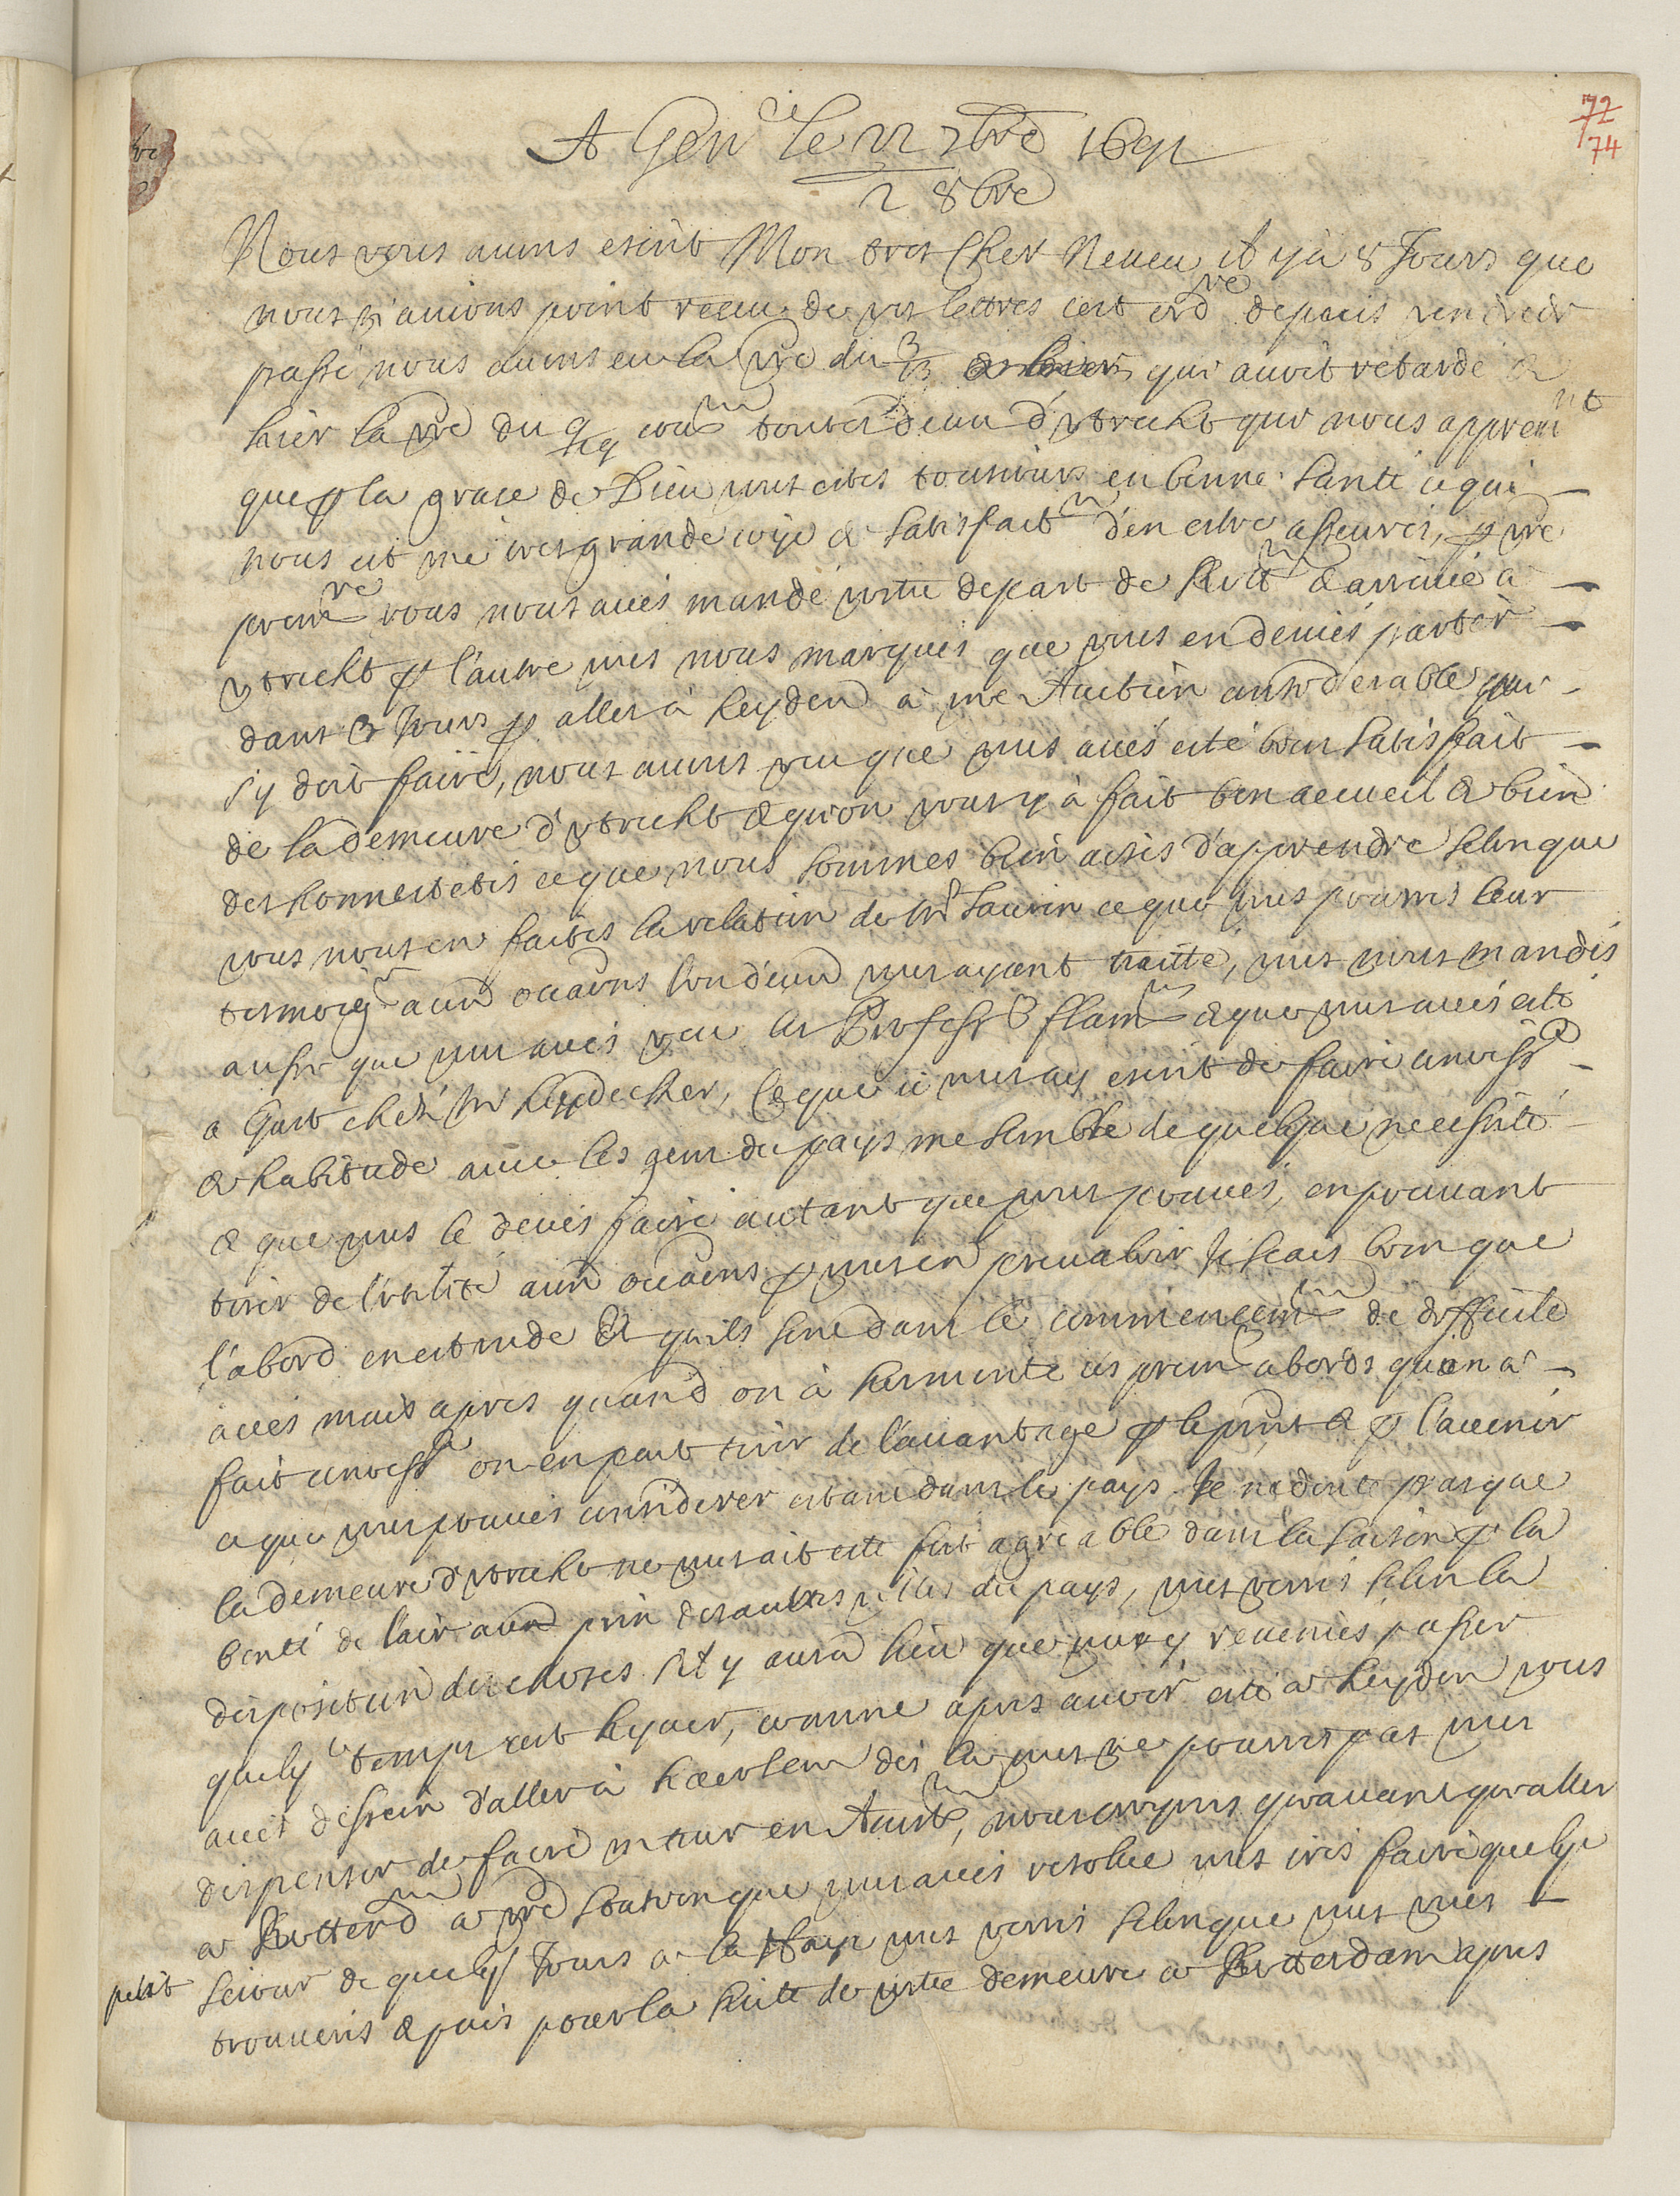 72
74
A Gen le 22 7bre 1691
2 8bre
Nous vous auons escrit Mon tres Cher Neueu il y a 8 Jours que
nous n'auions point receu de vos lettres cest ordre depuis vendredi
passé nous auons eu la vre du 3/13 qui auoit retardé &
hier la vre du 9/19 toutes deux d'vtrecht qui nous apprennent
que p la grace de Dieu vous estes tousiours en bonne santé ce qui
nous est vne tres grande ioye & satisfaction d'en estre asseurés, p vre
premre vous nous aués mandé votre depart de Rott & arriué a
vtrecht p l'autre vous nous marqués que vous en deuiés partir
dans 3 Jours p aller à Leyden a vne Auction considerable qui
s'y doit faire, nous auons veu que vous aués esté bien satisfait
de la demeure d'vtrecht & qu'on vous y à fait bon accueil & bien
des honnestetés ce que nous sommes bien aisés d'apprendre selon que
vous nous en faites la relation de Mr Saurin ce que vous pourrés leur
tesmoigr aux occaons l'un d'eux vous ayant traitté, vous nous mandés
aussi que vous aués veu les Professrs flam & que vous aués esté
a Gust chés Mr Leydecker, Ce que ie vous ay escrit de faire
& habitude auec les gens du pays me semble de quelque necessité
& que vous le deués faire autant que vous pouués, en pouuant
tirer de l'vtilité aux occaons p vous en preualoir Je scais bien que
l'abord en est rude & qu'ils sone dans le commencemt de difficile
accés mais apres quand on à surmonté ces premrs abords qu'on a
fait on en peut tirer de l'auantage p le pnt & p l'auenir
ce que vous pouués considerer estant dans le pays. Je ne doute pas que
la demeure d'vtrecht ne vous ait esté fort agreable dans la saison p la
bonté de l'air aux prix des autres villes du pays, vous verrés selon la
disposition des choses s'il y aura lieu que vous y reueniés passer
quelq temps cest hyuer, comme apres auoir esté a Leyden vous
aués dessein d'aller à Haerlem dés la vous ne pourrés pas vous
dispenser de faire vn tour en Amst, nous croyons qu'auant qu'aller
a Rotterd a vre que vous aués resolue vous irés faire quelq
petit seiour de quelqs Jours a la Haye vous verrés selon que vous vous
trouuerés & puis pour la suitte de votre demeure a Rotterdam apres